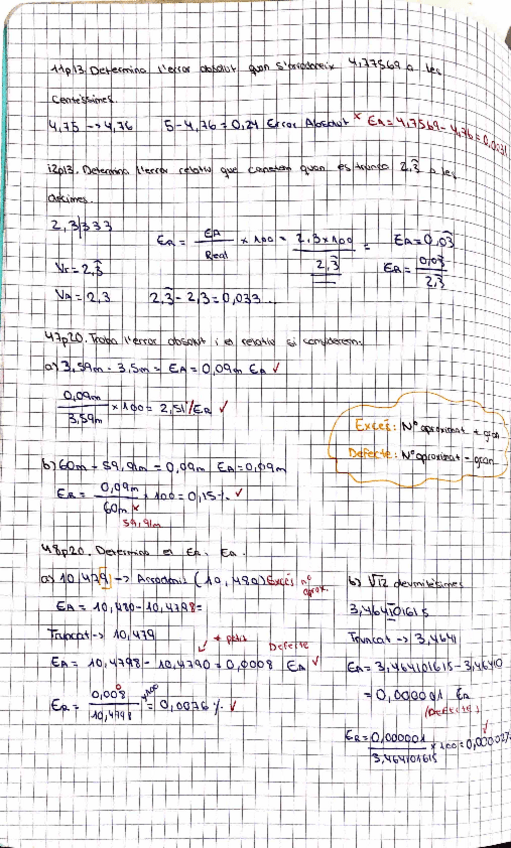 11p13. Determina l'error absolut quan s'arrodoneix 4,77569 a les
centèssimes.
4,75 -> 4,76 5-4,76=0,24 Error Absolut * EA=4,7569-4,76=0,0031
12p13. Determina l'error relatiu que cometem quan es trunca 2,3̂ a les
dècimes.
2,3|333
ER = EA/Real × 100 = 2,3×100/2,3̂ = EA=0,03̂
Vr=2,3̂ ER=0,03/2,3̂
VA=2,3 2,3̂-2,3=0,033...
47p20. Troba l'error absolut i el relatiu si considerem:
a) 3,59m - 3,5m = EA=0,09m EA ✓
0,09m/3,59m × 100 = 2,51% ER ✓
Excés: Nº aproximat + gran
Defecte: Nº aproximat - gran
b) 60m - 59,91m = 0,09m EA=0,09m
ER = 0,09m/60m × 100 = 0,15% ✓
59,91m
48p20. Determina el ER. EA.
a) 10,479 -> Arrodonit (10,480) Excés nº aprox.
EA = 10,480-10,4798=
Truncat -> 10,479
+ petit Defecte
EA = 10,4798-10,4790=0,0008 EA ✓
ER = 0,008/10,4798 ×100 = 0,0076% ✓
b) √12 deumilèsimes
3,464101615
Truncat -> 3,4641
EA=3,464101615-3,46410
=0,000001 EA
(Defecte)
ER=0,000001/3,464101615 × 100=0,000027